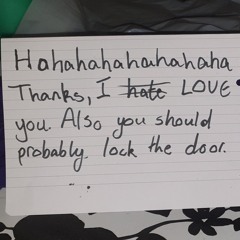 Hahahahahahahaha
Thanks, I hate LOVE
you. Also you should
probably. lock the door.